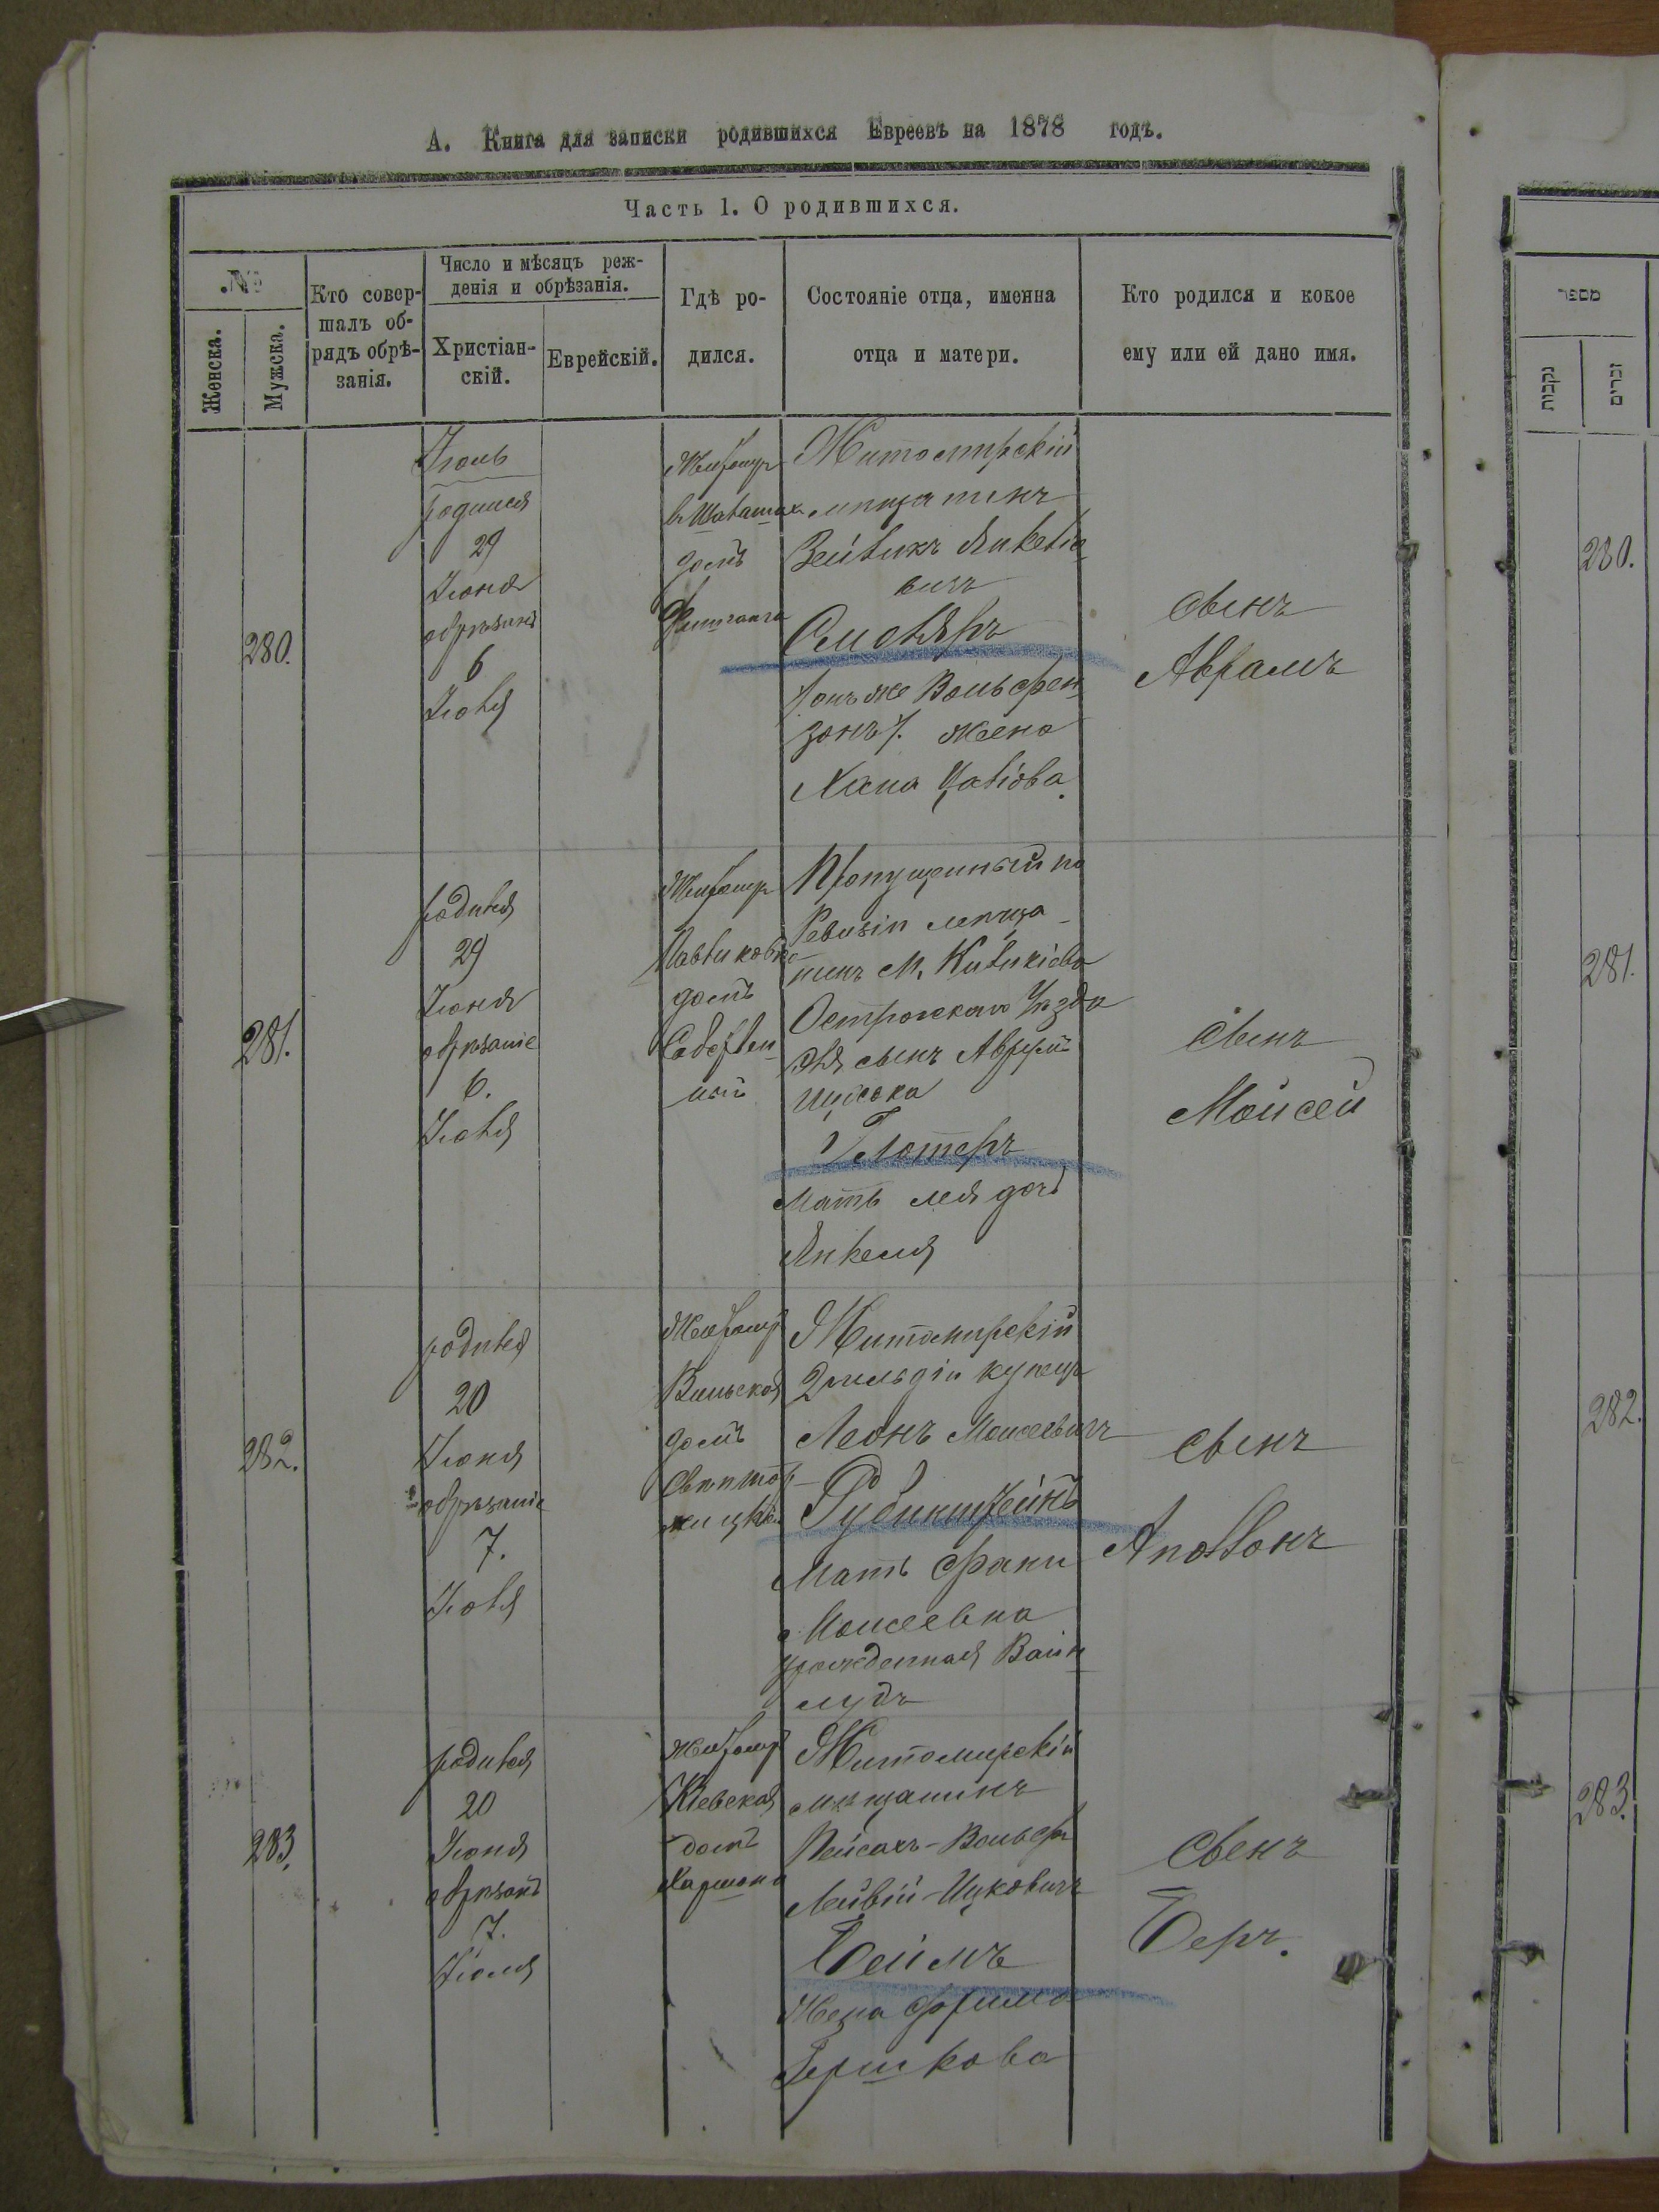 А. Книга для записки родившихся Евреевъ на 1878 годъ.
Часть 1. О родившихся.
№
Женска.
Мужска.
Кто совер-
шалъ об-
рядъ обрѣ-
занія.
Число и мѣсяцъ реж-
денія и обрѣзанія.
Христіан-
скій.
Еврейскій.
Гдѣ ро-
дился.
Состояніе отца, именна
отца и матери.
Кто родился и кокое
ему или ей дано имя.
280.
Іюль
родился
29
Іюня
обрѣзанъ
6
Іюля
Житомир
домъ
Житомирскій
мѣщанинъ
Зейликъ Янкеліо
вичъ
Смоляръ
онъ же Вольфен
зонъ). жена
Хана
сынъ
Аврамъ
281.
родился
29
Іюня
обрѣзаніе
6.
Іюля
Житомир
Павликовка
домъ
Собствен
ный
Пропущенный по
Ревизіи мѣща
нинъ м. Киликіова
Острожскаго Уѣзда
Эля сынъ Аврумъ
Ицська
Глотеръ
Мать Лея дочь
Янкеля
сынъ
Мойсей
282.
родился
20
Іюня
обрѣзаніе
7.
Іюля
Житомир
Вильская
домъ
Житомирскій
2 гильдіи купецъ
Леонъ Моисеевичъ
Рубинштейнъ
Мать Фани
Моисеевна
урожденная Вайн
лудъ
сынъ
Аполлонъ
283.
родился
20
Іюня
обрѣзанъ
7.
Іюля
Житомир
Кіевская
домъ
Житомирскій
мѣщанинъ
Пейсахъ-Вольфъ
Лейвій-Ицковичъ
Беймъ
Жена Фрима
Гершкова
сынъ
Беръ.
מספר
נקבות
זכרים
280.
281.
282.
283.